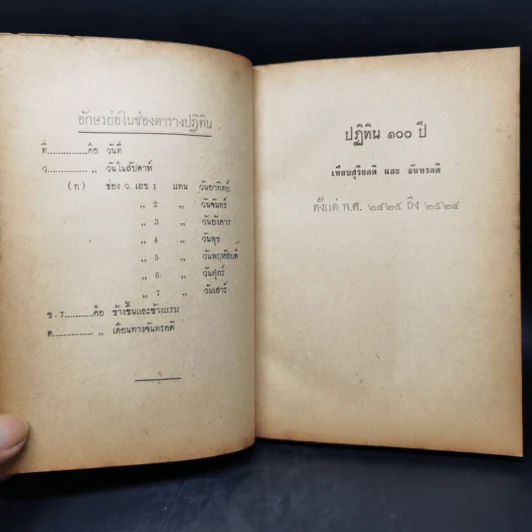 อักษรย่อในช่องตารางปฏิทิน
ที่...............คือ วันที่
ว............... ,, วันในสัปดาห์
(อ) ช่อง ว. เลข 1 แทน วันอาทิตย์
,, 2 ,, วันจันทร์
,, 3 ,, วันอังคาร
,, 4 ,, วันพุธ
,, 5 ,, วันพฤหัสบดี
,, 6 ,, วันศุกร์
,, 7 ,, วันเสาร์
ข.ร...........คือ ข้างขึ้นและข้างแรม
ด............... ,, เดือนทางจันทรคติ
ปฏิทิน ๑๐๐ ปี
เทียบสุริยคติ และ จันทรคติ
ตั้งแต่ พ.ศ. ๒๔๒๕ ถึง ๒๕๒๔